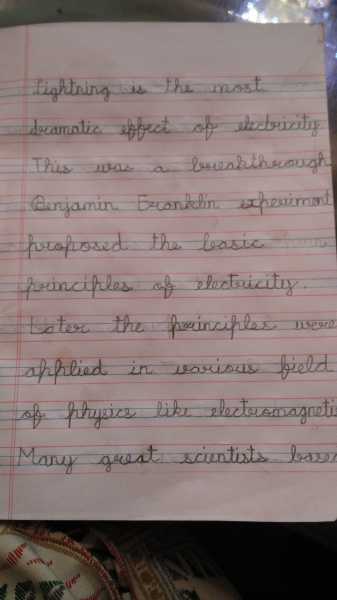 Lightning is the most
dramatic effect of electricity
This was a breakthrough
Benjamin Franklin experiment
proposed the basic
principles of electricity.
Later the principles were
applied in various field
of physics like electromagneti
Many great scientists base